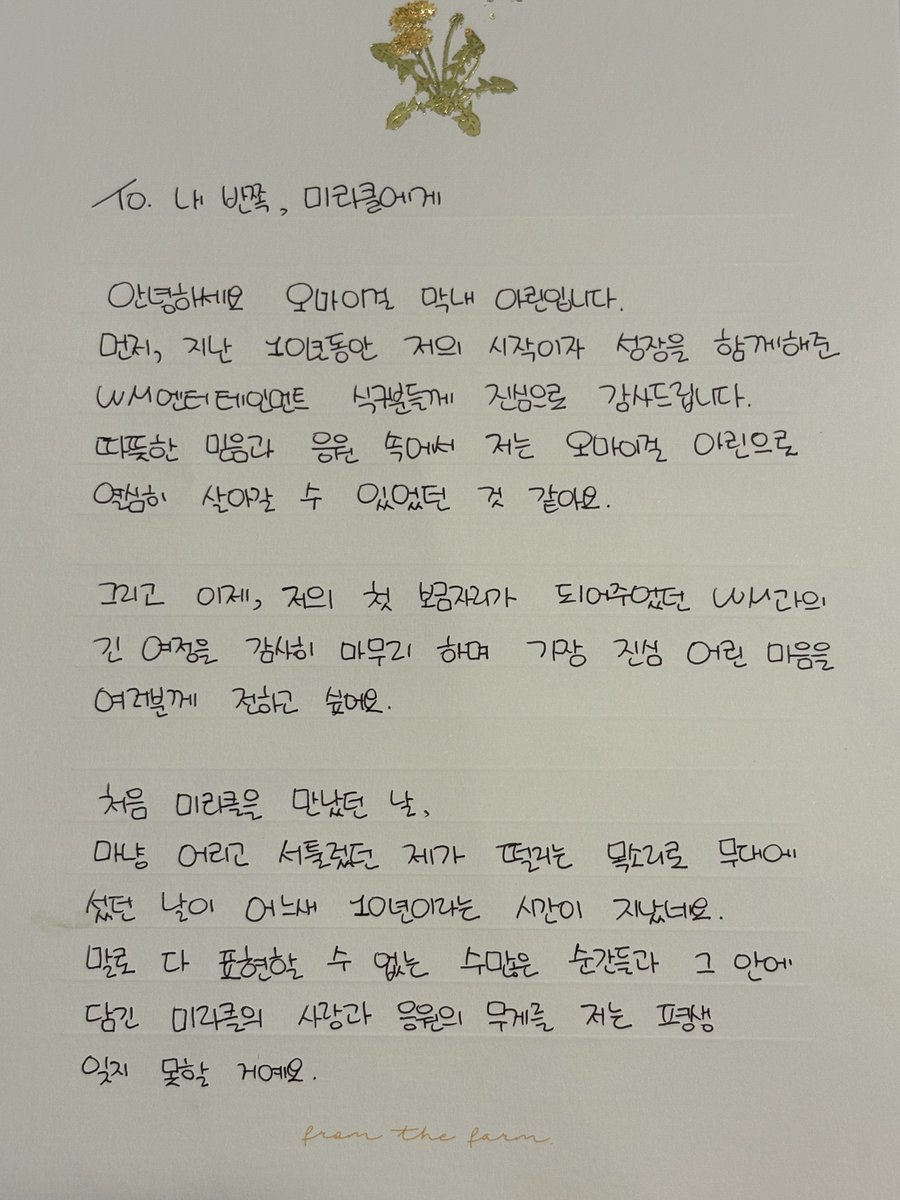 To. 내 반쪽, 미라클에게
안녕하세요 오마이걸 막내 아린입니다.
먼저, 지난 10년동안 저의 시작이자 성장을 함께해준
WM엔터테인먼트 식구분들께 진심으로 감사드립니다.
따뜻한 믿음과 응원 속에서 저는 오마이걸 아린으로
열심히 살아갈 수 있었던 것 같아요.
그리고 이제, 저의 첫 보금자리가 되어주었던 WM과의
긴 여정을 감사히 마무리 하며 가장 진심 어린 마음을
여러분께 전하고 싶어요.
처음 미라클을 만났던 날,
마냥 어리고 서툴렀던 제가 떨리는 목소리로 무대에
섰던 날이 어느새 10년이라는 시간이 지났네요.
말로 다 표현할 수 없는 수많은 순간들과 그 안에
담긴 미라클의 사랑과 응원의 무게를 저는 평생
잊지 못할 거예요.
from the farm